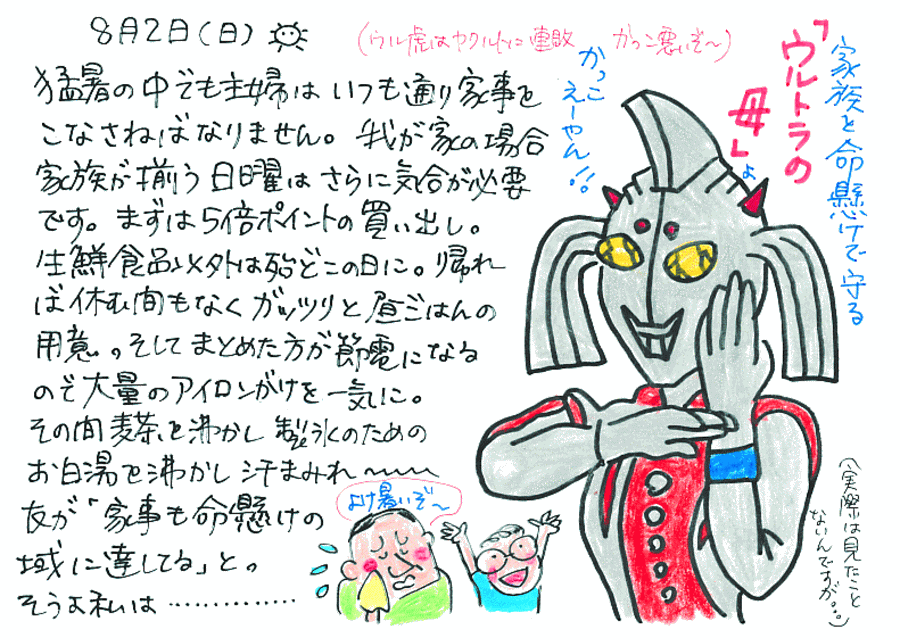 8月2日(日)
(ウル虎はヤクルトに連敗 かっこ悪いぞ〜)
猛暑の中でも主婦はいつも通り家事を
こなさねばなりません。我が家の場合
家族が揃う日曜はさらに気合が必要
です。まずは5倍ポイントの買い出し。
生鮮食品以外は殆どこの日に。帰れ
ば休む間もなくガッツリと昼ごはんの
用意。そしてまとめた方が節電になる
ので大量のアイロンがけを一気に。
その間麦茶を沸かし製氷のための
お白湯を沸かし汗まみれ〜〜
友が「家事も命懸けの
域に達してる」と。
そうよ私は…………
家族を命懸けで守る
「ウルトラの
母」よ
かっこ
えーやん!!
よけ暑いぞ〜
(実際は見たこと
ないんですが。。)